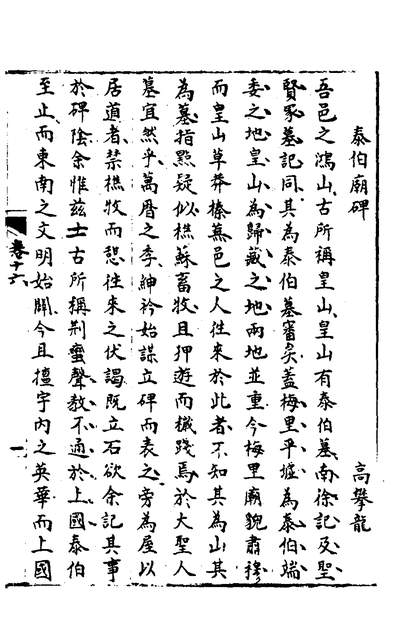 泰伯廟碑
高攀龍
吾邑之鴻山古所稱皇山皇山有泰伯墓南徐記及聖
賢冢墓記同其為泰伯墓審矣蓋梅里平墟為泰伯端
委之地皇山為歸藏之地兩地並重今梅里廟貌肅穆
而皇山草莽榛蕪邑之人往來於此者不知其為山其
為墓指點疑似樵蘇畜牧且狎遊而樵踐焉於大聖人
墓宜然乎萬曆之季紳衿始謀立碑而表之旁為屋以
居道者禁樵牧而恕往來之伏謁既立石欲余記其事
於碑陰余惟茲土古所稱荆蠻聲教不通於上國泰伯
至止而東南之文明始闢今且擅宇內之英華而上國
卷十六
一